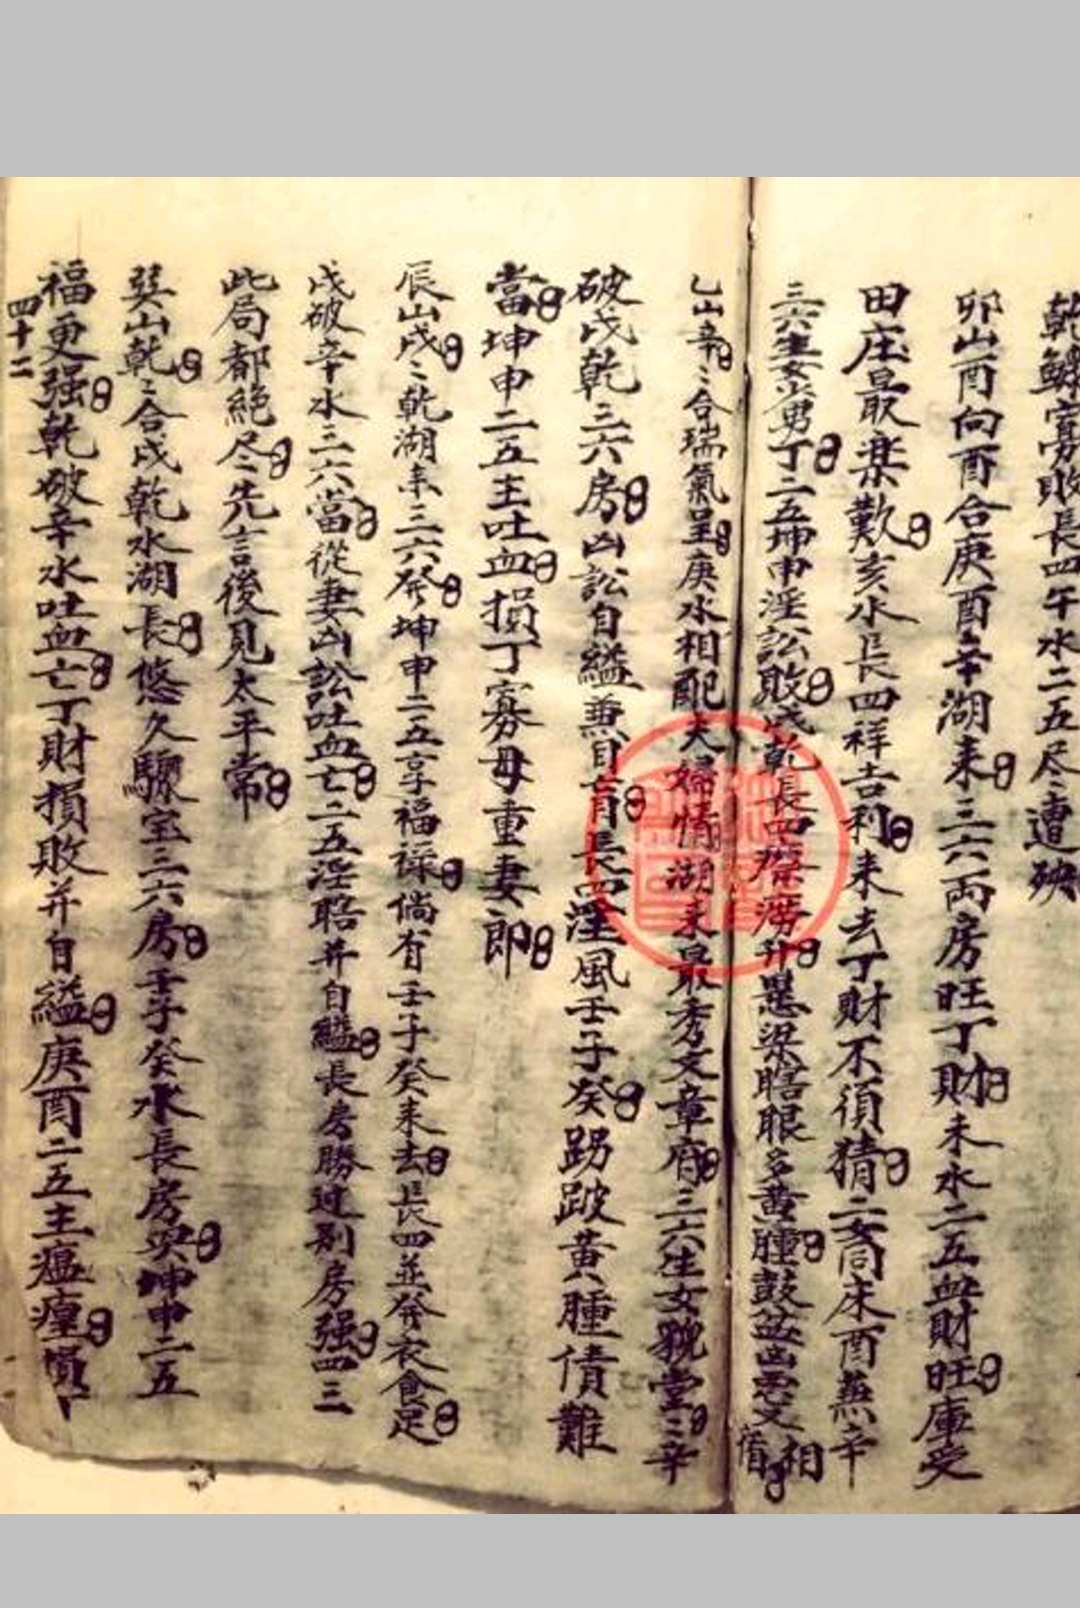 乾鰥寡敗長四午水二五尽遭殃
卯山酉向酉合庚酉辛湖来三六両房旺丁財未水二五血財旺庫受
田庄最楽歎亥水長四祥吉利来去丁財不須猜二女同床酉無辛
三六生女少男丁二五坤申淫訟敗戌乾長四癆并懸梁瞎眼多黄腫鼓盆凶悪又相
乙山辛ミ合瑞氣呈庚水相配夫婦情湖来最秀文章府三六生女貌堂ミ辛
破戌乾三六房凶訟自縊無目盲長四淫風壬子癸跛黄腫債難
當坤申二五主吐血損丁寡母重妻郎
辰山戌ミ乾湖来三六発坤申二五享福禄倘有壬子癸来去長四並発衣食足
戌破辛水三六當從妻凶訟吐血亡二五淫賠并自縊長房勝过别房强四三
此局都絕尽ミ先言後見太平常
巽山乾ミ合戌乾水湖長悠久驟宝三六房壬子癸水長房央坤申二五
福更强乾破辛水吐血亡丁財損敗并自縊庚酉二五主瘟瘟損丁
四十二